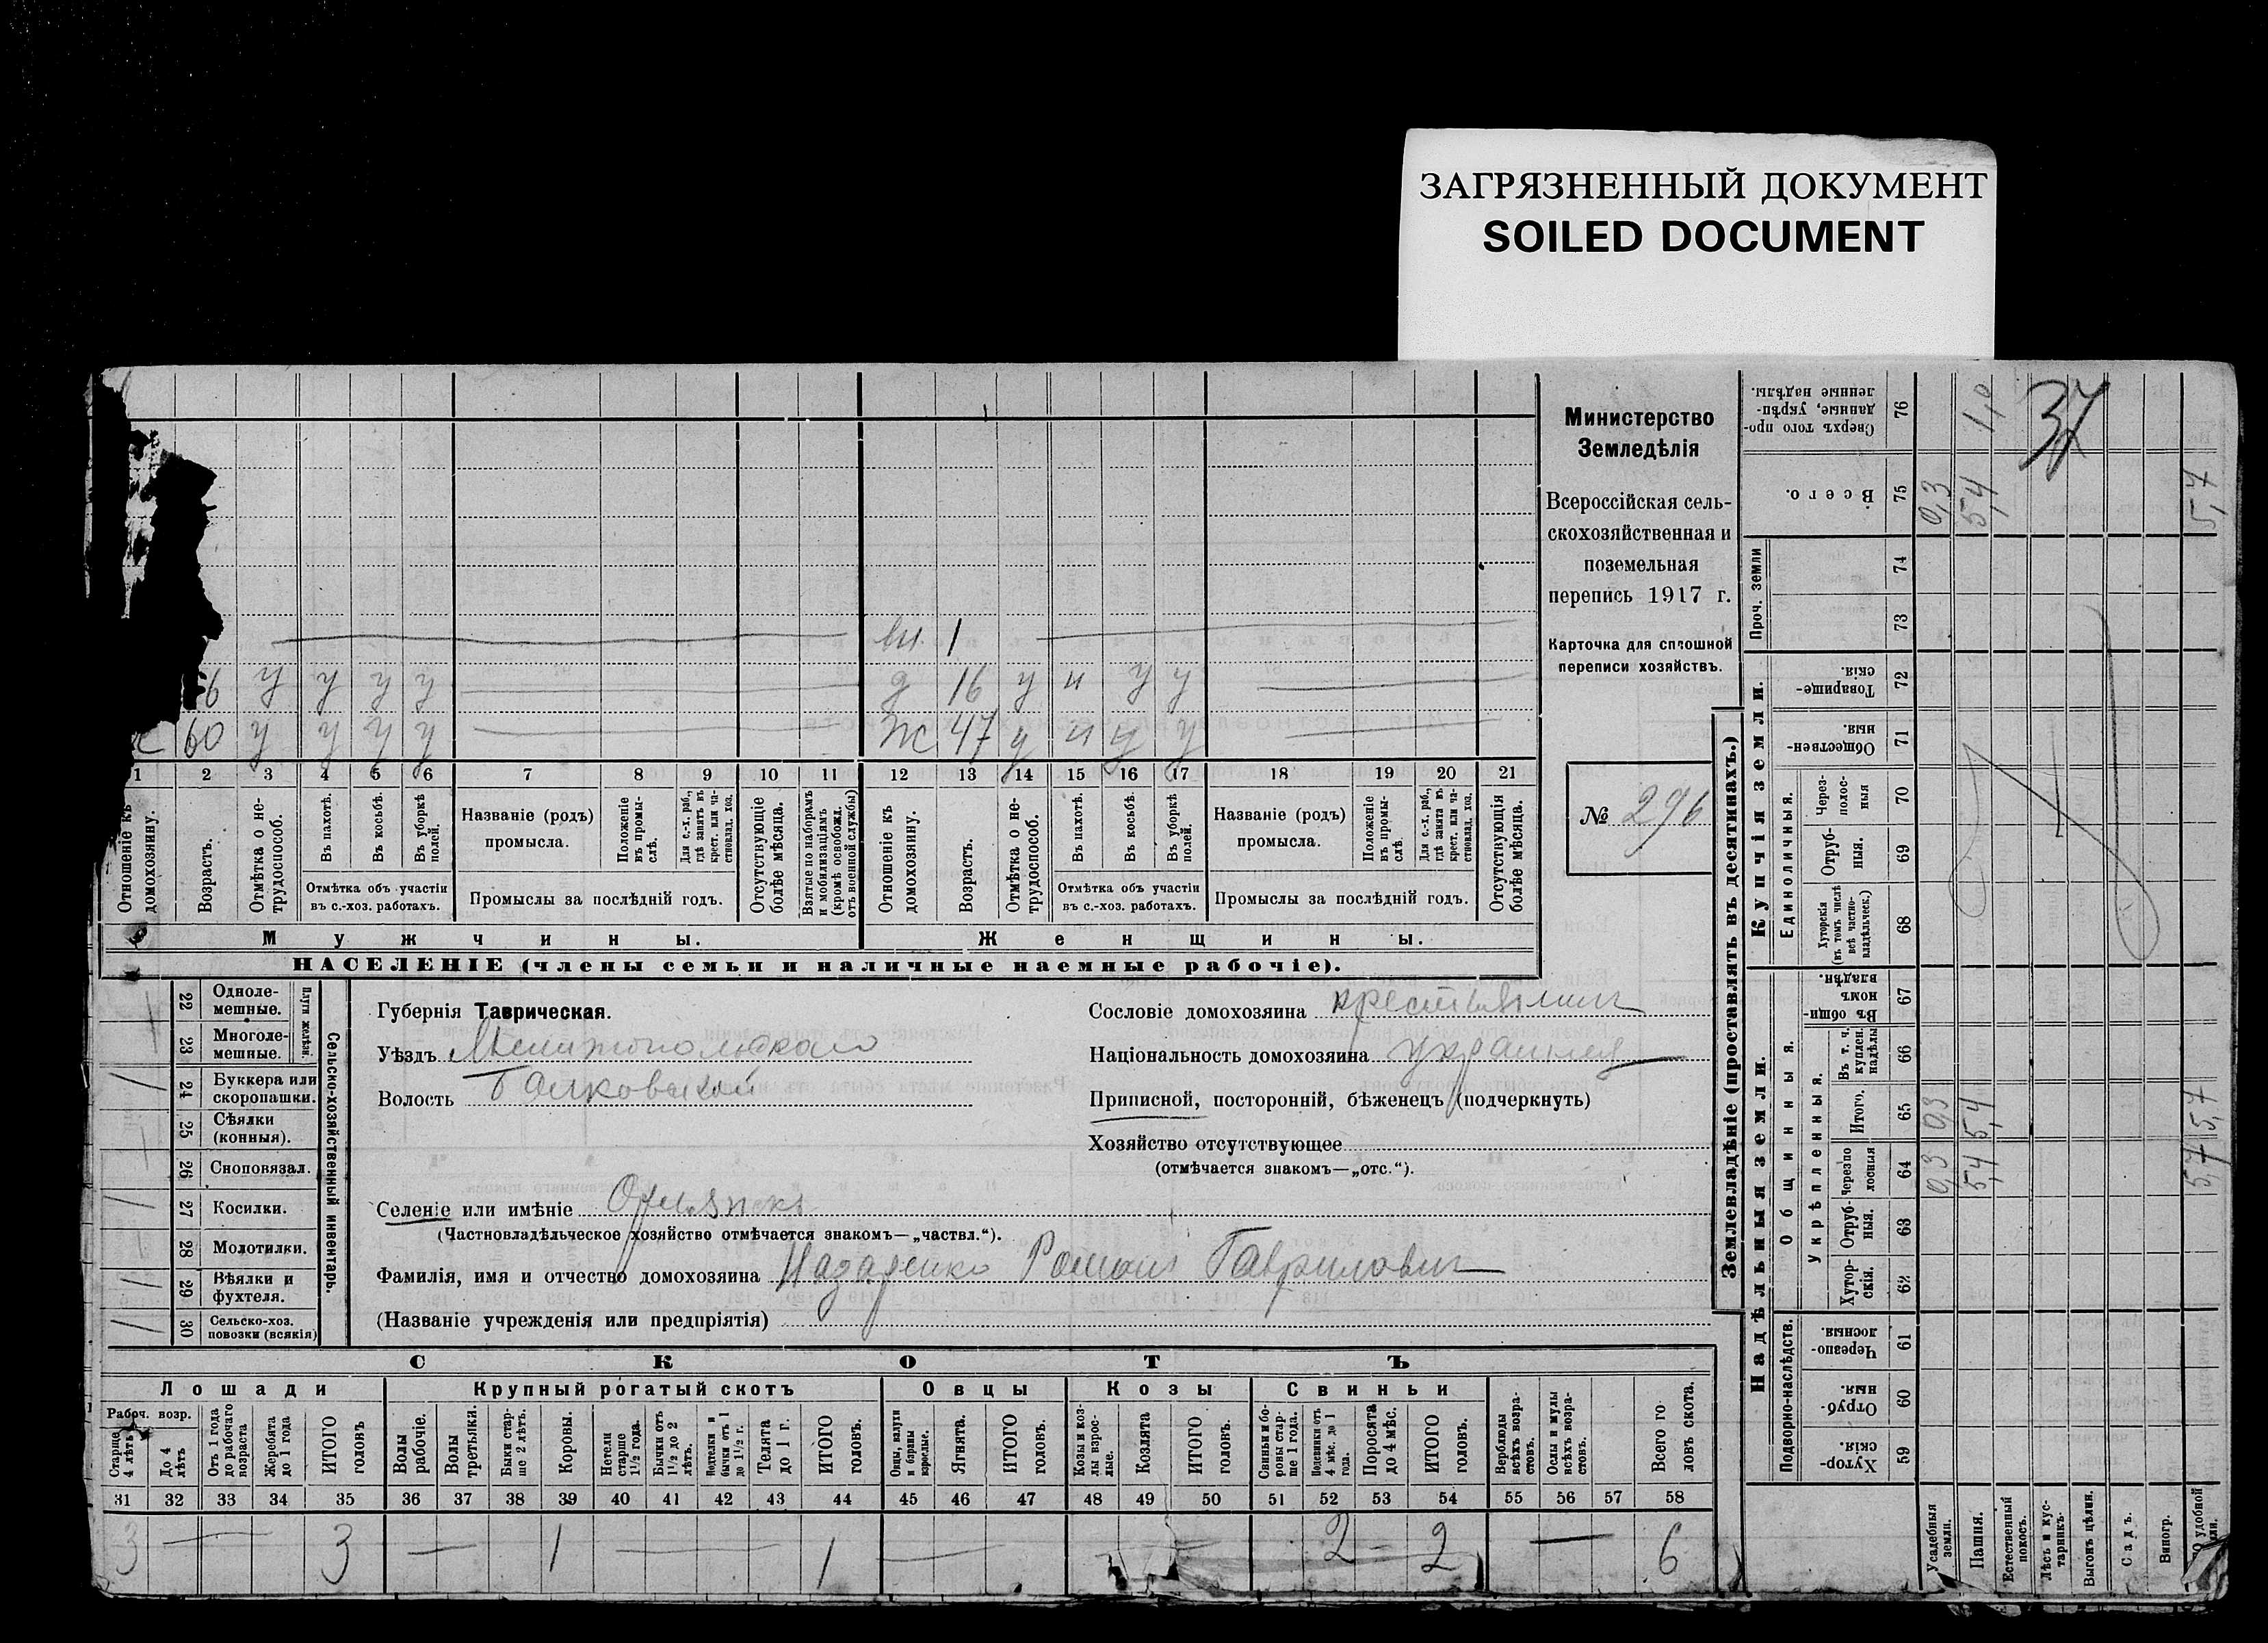 ЗАГРЯЗНЕННЫЙ ДОКУМЕНТ
SOILED DOCUMENT
Министерство
Земледѣлія
Всероссійская сель-
скохозяйственная и
поземельная
перепись 1917 г.
Карточка для сплошной
переписи хозяйствъ.
№ 296
вн 1
6 у у у у д 16 у н у у
60 у у у у ж 47 у н у у
1 2 3 4 5 6 7 8 9 10 11 12 13 14 15 16 17 18 19 20 21
Отношеніе къ домохозяину.
Возрастъ.
Отмѣтка о не-трудоспособ.
Въ пахотѣ.
Въ косьбѣ.
Въ уборкѣ полей.
Отмѣтка объ участіи
въ с.-хоз. работахъ.
Названіе (родъ)
промысла.
Положеніе въ промы-слѣ.
Для с.-х. раб., гдѣ занятъ въ крест. или ча-стновлад. хоз.
Промыслы за послѣдній годъ.
Отсутствующіе болѣе мѣсяца.
Взятые по наборамъ и мобилизаціямъ (кромѣ освобожд. отъ военной службы)
Отношеніе къ домохозяину.
Возрастъ.
Отмѣтка о не-трудоспособ.
Въ пахотѣ.
Въ косьбѣ.
Въ уборкѣ полей.
Отмѣтка объ участіи
въ с.-хоз. работахъ.
Названіе (родъ)
промысла.
Положеніе въ промы-слѣ.
Для с.-х. раб., гдѣ занята въ крест. или ча-стновлад. хоз.
Промыслы за послѣдній годъ.
Отсутствующія болѣе мѣсяца.
Мужчины.
Женщины.
НАСЕЛЕНІЕ (члены семьи и наличные наемные рабочіе).
Сельско-хозяйственный инвентарь.
Плуги желѣзн.
22 Одноле-мешные.
23 Многоле-мешные.
24 Буккера или скоропашки.
25 Сѣялки (конныя).
26 Сноповязал.
27 Косилки.
28 Молотилки.
29 Вѣялки и фухтеля.
30 Сельско-хоз. повозки (всякія)
Губернія Таврическая.
Уѣздъ Мелитопольскаго
Волость
Селеніе или имѣніе
(Частновладѣльческое хозяйство отмѣчается знакомъ—„частвл.“).
Фамилія, имя и отчество домохозяина Назаренко Романъ Гавриловичъ
(Названіе учрежденія или предпріятія)
Сословіе домохозяина крестьянинъ
Національность домохозяина украинец
Приписной, посторонній, бѣженецъ (подчеркнуть)
Хозяйство отсутствующее
(отмѣчается знакомъ—„отс.“).
СКОТЪ
Лошади
Крупный рогатый скотъ
Овцы
Козы
Свиньи
Рабоч. возр.
Старше 4 лѣтъ
До 4 лѣтъ
Отъ 1 года до рабочаго возраста
Жеребята до 1 года
ИТОГО головъ
Волы рабочіе.
Волы третьяки.
Быки стар-ше 2 лѣтъ.
Коровы.
Нетели старше 1 1/2 года.
Бычки отъ 1 1/2 до 2 лѣтъ.
Подтелки и бычки отъ 1 до 1 1/2 г.
Телята до 1 г.
ИТОГО головъ.
Овцы, валухи и бараны взрослые.
Ягнята.
ИТОГО головъ.
Козы и коз-лы взрос-лые.
Козлята
ИТОГО головъ.
Свиньи и бо-ровы стар-ше 1 года.
Подсвинки отъ 4 мѣс. до 1 года.
Поросята до 4 мѣс.
ИТОГО головъ.
Верблюды всѣхъ возра-стовъ.
Ослы и мулы всѣхъ возра-стовъ.
Всего го-ловъ скота.
31 32 33 34 35 36 37 38 39 40 41 42 43 44 45 46 47 48 49 50 51 52 53 54 55 56 57 58
3 — 3 — 1 — 1 — — 2 — 2 — 6
Землевладѣніе (проставлять въ десятинахъ.)
Купчія земли.
Надѣльныя земли.
Сверхъ того про-данные, укрѣп-ленные надѣлы. 76 1,0
37
Всего. 75 0,3 5,4 5,7
Проч. земли
74
73
Товарище-скія. 72
Обществен-ныя. 71
Единоличныя.
Через-полос-ныя 70
Отруб-ныя. 69
Хуторскія (въ томъ числѣ всѣ частно-владѣльческ.) 68
Общинныя.
Въ общин-номъ владѣн. 67
Укрѣпленныя.
Въ т. ч. куплен. надѣлы 66
Итого. 65 0,3 5,4 5,7
Черезпо-лосныя 64 0,3 5,4 5,7
Отруб-ныя. 63
Хутор-скія. 62
Подворно-наслѣдств.
Черезпо-лосныя 61
Отруб-ныя. 60
Хутор-скія. 59
Усадебныя земли.
Пашня.
Естественный покосъ.
Лѣсъ и кус-тарникъ.
Выгонъ цѣлин.
Садъ.
Виногр.
удобной